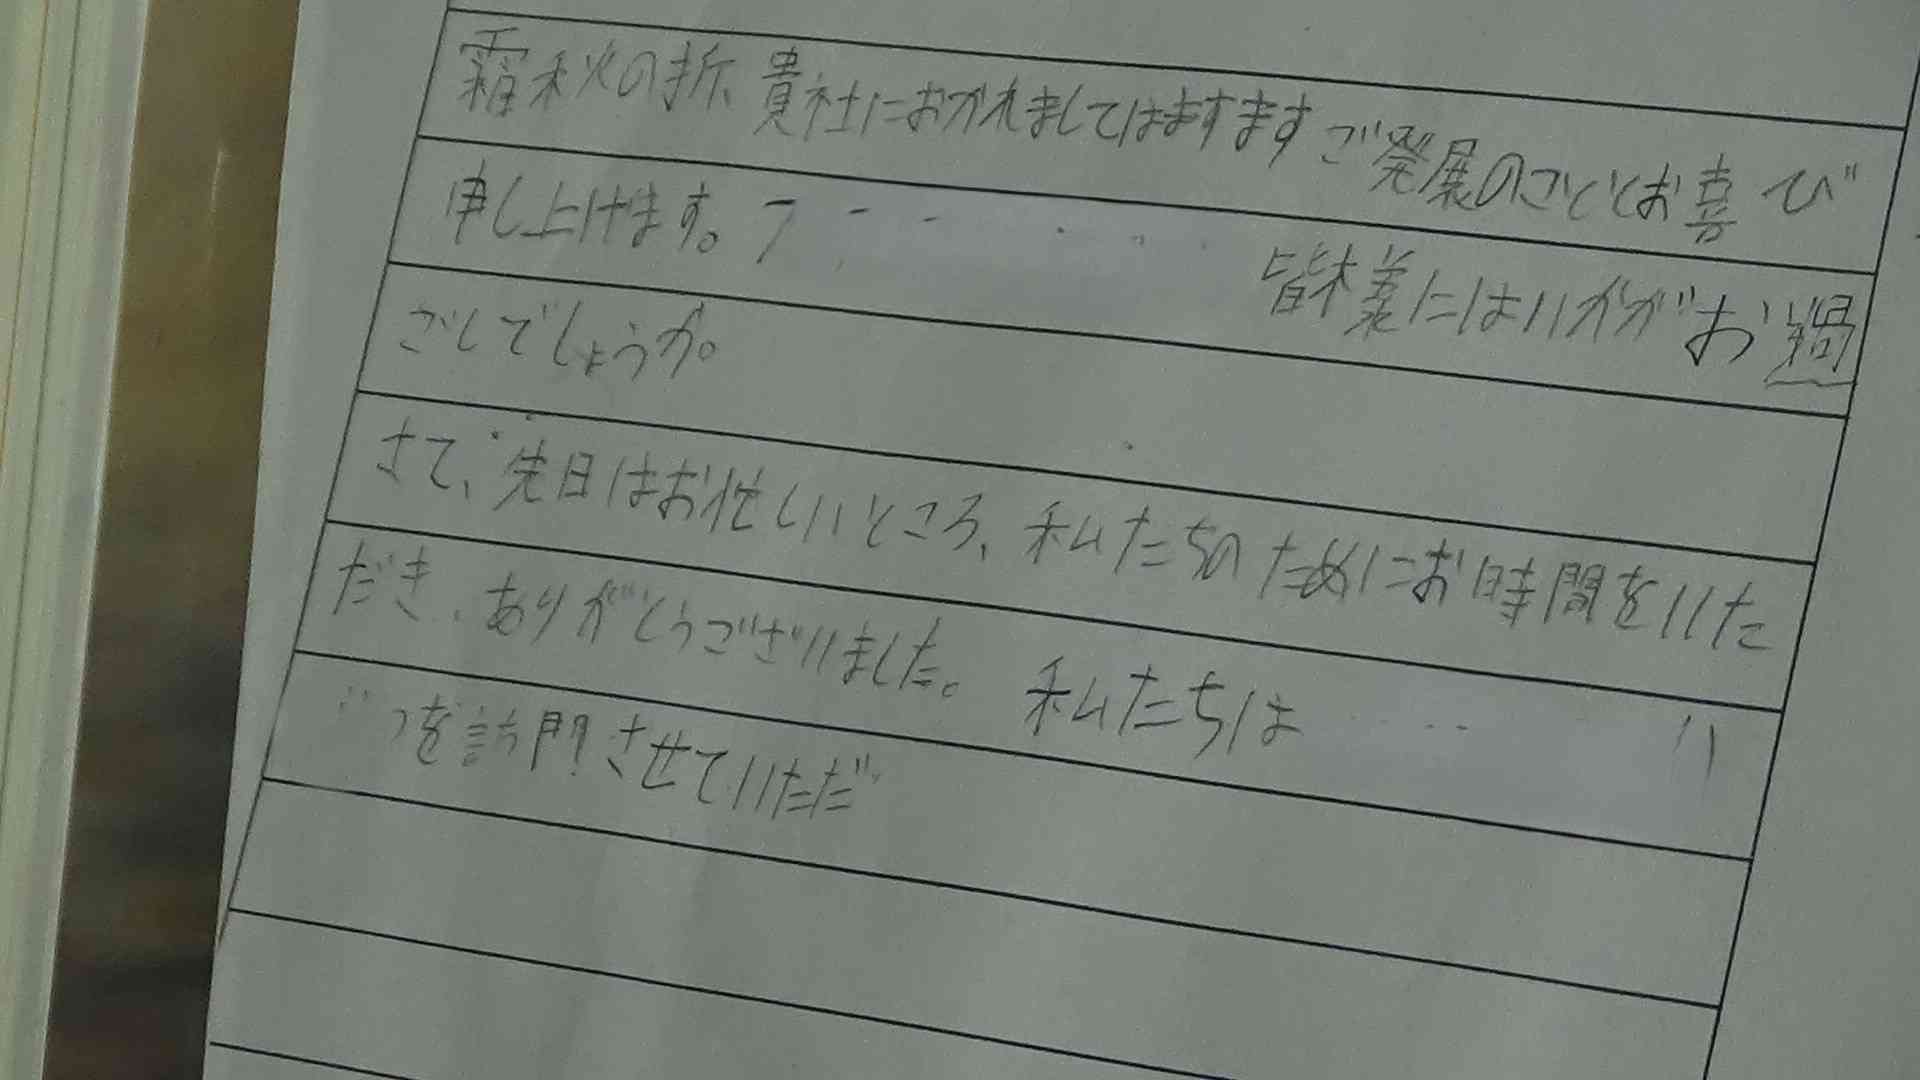 霜秋の折、貴社におかれましてはますますご発展のこととお喜び
申し上げます。 皆様にはいかがお過
ごしでしょうか。
さて、先日はお忙しいところ、私たちのためにお時間をいた
だき、ありがとうございました。 私たちは
を訪問させていただ